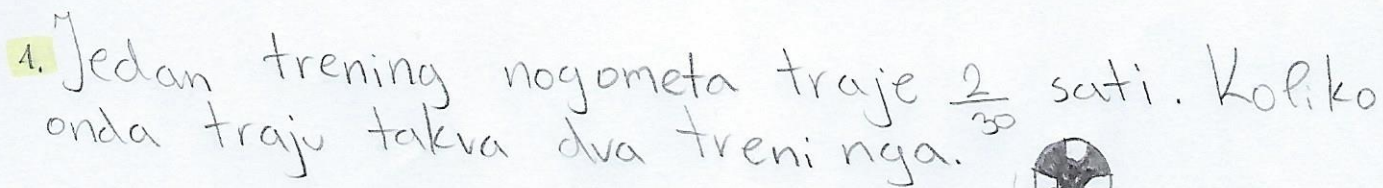 1. Jedan trening nogometa traje 2/30 sati. Koliko
onda traju takva dva treninga.